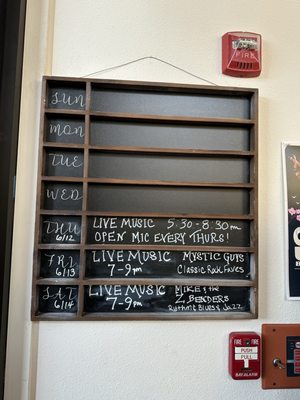 SUN
MON
TUE
WED
THU
6/12
LIVE MUSIC 5:30-8:30PM
OPEN MIC EVERY THURS!
FRI
6/13
LIVE MUSIC MYSTIC GUYS
7-9PM CLASSIC ROCK FAVES
SAT
6/14
LIVE MUSIC MIKE & THE
7-9PM Z BENDERS
RHYTHM BLUES & JAZZ
FIRE
FIRE FIRE
PUSH
PULL